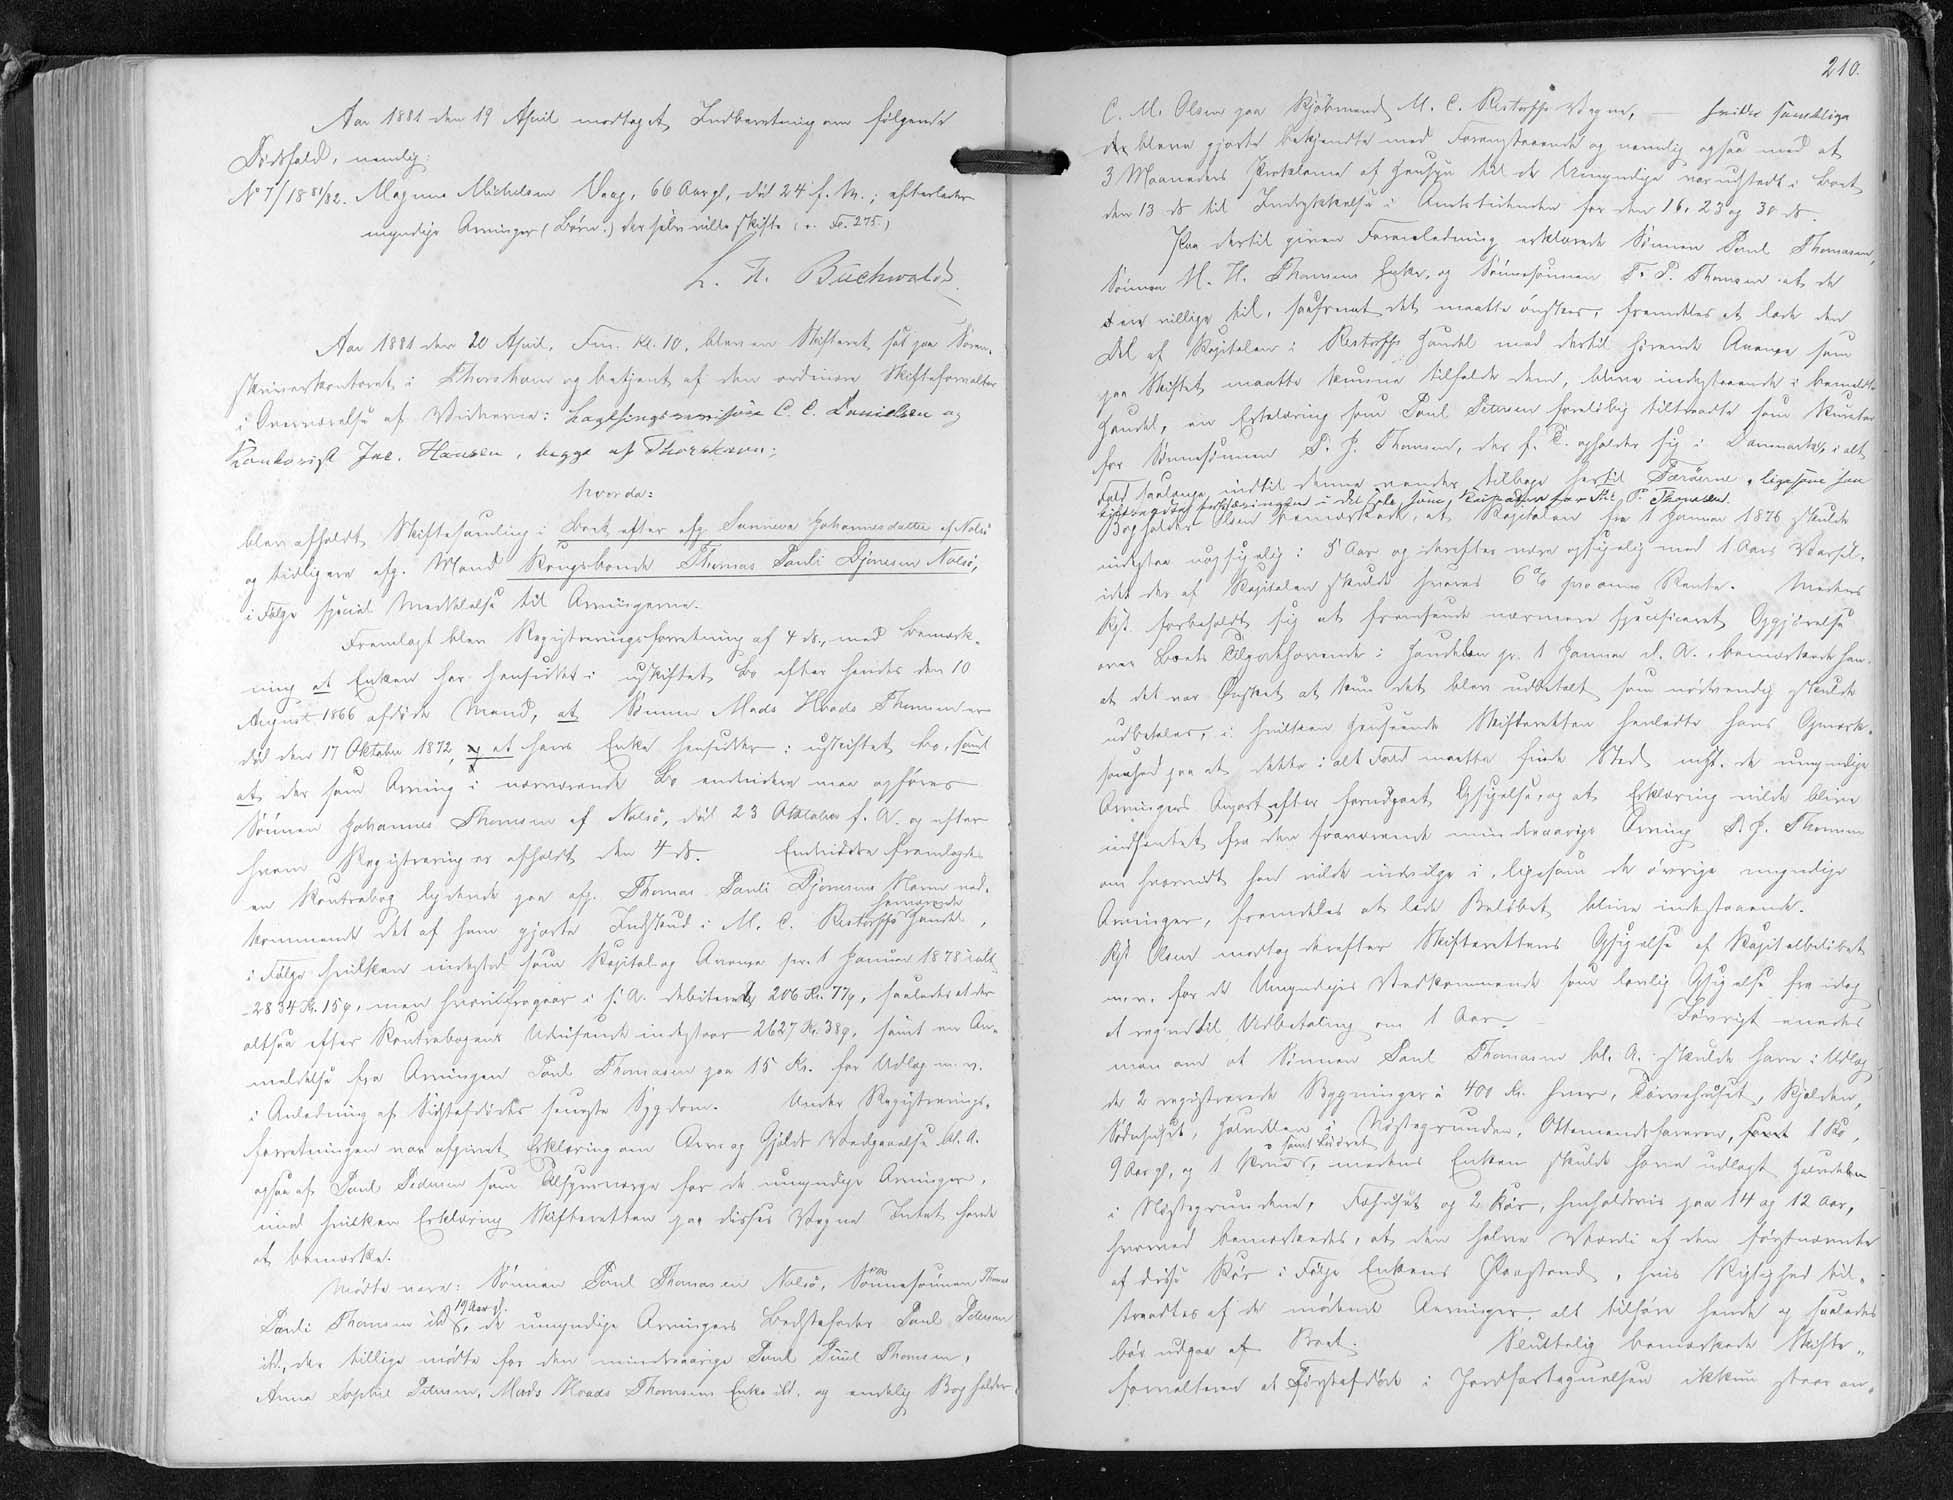 Aar 1881 den 19 April modtoges Indberetning om følgende
Dødsfald, nemlig:
No 7/1881/82. Magnus Michelsen Vaag, 66 Aar gl., død 24 f. M.; efterlader
myndige Arvinger (Børn) der selv ville skifte (v. Fo. 275.)
L. A. Buchwald
Aar 1881 den 20 April, Fm. Kl. 10, blev en Skifteret sat paa Soren-
skriverkontoret i Thorshavn og betjent af den ordinære Skifteforvalter
i Overværelse af Vidnerne: Lagthingsmand C. C. Danielsen og
Kontorist Jac. Hansen, begge af Thorshavn;
hvorda:
blev afholdt Skiftesamling i Boet efter afg. Sunneva Johannesdatter af Nolsø
og tidligere afg. Mand Kongsbonde Thomas Pauli Djonesen Nolsø,
i Følge special Meddelelse til Arvingerne.
Fremlagt blev Registreringsforretning af 4 ds., med Bemærk-
ning at Enken har hensiddet i uskiftet Bo efter hendes den 10
August 1866 afdøde Mand, at Sønnen Mads Thomsen er
død den 17 Oktober 1872, at hans Enke hensidder i uskiftet Bo, samt
at der som Arving i nærværende Bo endvidere maa opføres
Sønnen Johannes Thomsen af Nolsø, død 23 Oktober f. A. og efter
hvem Registrering er afholdt den 4 ds. Endvidere fremlagdes
en Kontrabog lydende paa afg. Thomas Pauli Djonesens Navn ved-
kommende det af ham gjorte Indskud i M. C. Restorffs Handel,
i Følge hvilken indestod som Kapital og Avance pr. 1 Januar 1878 ialt
2834 Kr. 15 ø, men hvorifragaar i f. A. debiterede 206 Kr. 77 ø, saaledes at der
altsaa efter Kontrabogens Udvisende indestaar 2627 Kr. 38 ø, samt en An-
meldelse fra Arvingen Poul Thomasen paa 15 Kr. for Udlæg m. v.
i Anledning af Sidstafdødes seneste Sygdom. Under Registrerings-
forretningen var afgivet Erklæring om Arv og Gjælds Vedgaaelse bl. A.
ogsaa af Poul Petersen som Tilsynsværge for de umyndige Arvinger,
imod hvilken Erklæring Skifteretten paa disses Vegne Intet havde
at bemærke.
Mødte vare: Sønnen Poul Thomasen Nolsø, Sønnesønnen Thomas
Pauli Thomsen ibd. 19 Aar gl., de umyndige Arvingers Bedstefader Poul Petersen
ibd., der tillige mødte for den mindreaarige Poul Thomsen,
Anna Sophie Petersen, Mads Thomsens Enke ibd. og endelig Bogholder
210.
C. M. Olsen paa Kjøbmand M. C. Restorffs Vegne, — hvilke samtlige
bleve gjorte bekjendte med Foranstaaende og nemlig ogsaa med at
3 Maaneders Proklama af Hensyn til de Umyndige var udstedt i Boet
den 13 ds til Indrykkelse i Amtstidende for den 16, 23 og 30 ds.
Paa dertil given Foranledning erklærede Sønnen Poul Thomasen,
Sønnen M. H. Thomsens Enke, og Sønnesønnen T. P. Thomsen at de
ere villige til, saafremt det maatte ønskes, fremdeles at lade den
Del af Kapitalen i Restorffs Handel med dertil hørende Avance som
paa Skiftet maatte kunne tilfalde dem, blive indestaaende i bemeldte
Handel, en Erklæring som Poul Petersen foreløbig tiltraadte som Kurator
for Sønnesønnen P. J. Thomsen, der f. T. opholder sig i Danmark, i alt
Fald saalænge indtil denne vender tilbage hertil Færøerne, ligesom han
som Kurator for Th. P. Thomsen.
Bogholder Olsen bemærkede, at Kapitalen fra 1 Januar 1876 skulde
indestaa uopsigelig i 5 Aar og derefter være opsigelig med 1 Aars Varsel,
idet der af Kapitalen skulde svares 6% pro anno Rente. Medens
forbeholdt sig at fremsende nærmere specificeret Opgjørelse
over Boets Tilgodehavende i Handelen pr. 1 Januar d. A., bemærkede han
at det var Ønsket at kun det blev udbetalt som nødvendig skulde
udbetales, i hvilken Henseende Skifteretten henledte hans Opmærk-
somhed paa at dette i alt Fald maatte finde Sted mht. de umyndige
Arvingers Anpart efter forudgaaet Opsigelse, og at Erklæring vilde blive
indhentet fra den fraværende mindreaarige Arving P. J. Thomsen
om hvorvidt han vilde indvilge i, ligesom de øvrige myndige
Arvinger, fremdeles at lade Beløbet blive indestaaende.
Olsen modtog derefter Skifterettens Opsigelse af Kapitalbeløbet
m. v. for de Umyndiges Vedkommende som lovlig Opsigelse fra idag
at regne til Udbetaling om 1 Aar. — Iøvrigt enedes
man om at Sønnen Poul Thomasen bl. A. skulde have i Udlæg
de 2 registrerede Bygninger à 400 Kr. hver, Tørvehuset, Kjelderen,
Halvdelen i Nøstegrunden, Ottemandsfareren, 1 Ko,
9 Aar gl., og 1 medens Enken skulde have udlagt Halvdelen
i Nøstegrunden, Fæhuset og 2 Køer, henholdsvis paa 14 og 12 Aar,
hvorved bemærkedes, at den halve Værdi af den førstnævnte
af disse Køer i Følge Enkens Paastand, hvis Rigtighed til-
traadtes af de mødende Arvinger, alt tilhøre hende og saaledes
bør udgaa af Boet. Sluttelig bemærkede Skifte-
forvalteren at Førstafdøde i Jordfortegnelsen ikkun staar an-